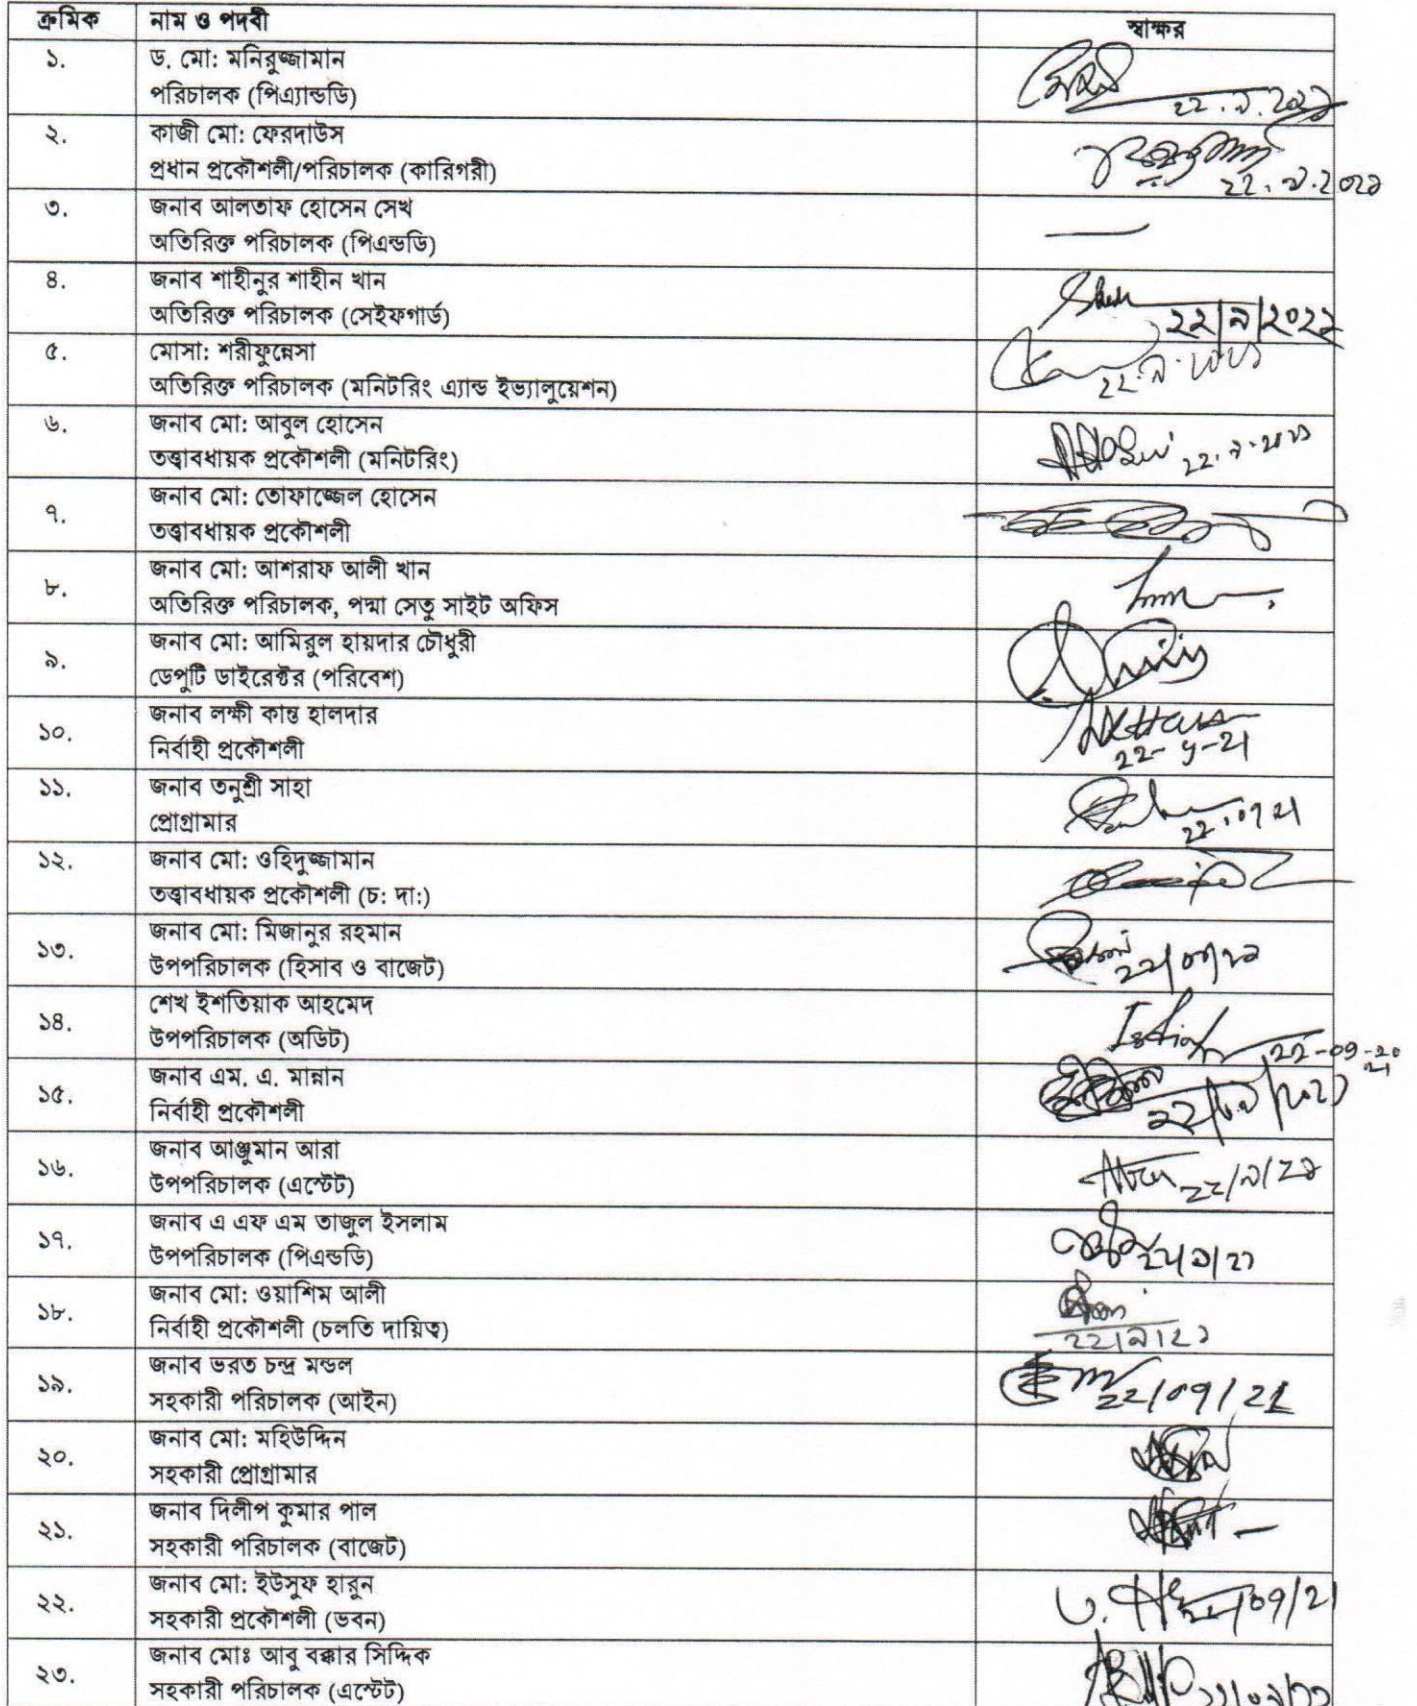 ক্রমিক নাম ও পদবী স্বাক্ষর
১. ড. মো: মনিরুজ্জামান
পরিচালক (পিএ্যান্ডডি)
22.৯.2021
২. কাজী মো: ফেরদাউস
প্রধান প্রকৌশলী/পরিচালক (কারিগরী)
22.৯.2021
৩. জনাব আলতাফ হোসেন সেখ
অতিরিক্ত পরিচালক (পিএন্ডডি)
৪. জনাব শাহীনুর শাহীন খান
অতিরিক্ত পরিচালক (সেইফগার্ড)
২২/৯/২০২১
৫. মোসা: শরীফুন্নেসা
অতিরিক্ত পরিচালক (মনিটরিং এ্যান্ড ইভ্যালুয়েশন)
৬. জনাব মো: আবুল হোসেন
তত্ত্বাবধায়ক প্রকৌশলী (মনিটরিং)
৭. জনাব মো: তোফাজ্জেল হোসেন
তত্ত্বাবধায়ক প্রকৌশলী
৮. জনাব মো: আশরাফ আলী খান
অতিরিক্ত পরিচালক, পদ্মা সেতু সাইট অফিস
৯. জনাব মো: আমিরুল হায়দার চৌধুরী
ডেপুটি ডাইরেক্টর (পরিবেশ)
১০. জনাব লক্ষী কান্ত হালদার
নির্বাহী প্রকৌশলী
22-9-21
১১. জনাব তনুশ্রী সাহা
প্রোগ্রামার
22.09.21
১২. জনাব মো: ওহিদুজ্জামান
তত্ত্বাবধায়ক প্রকৌশলী (চ: দা:)
১৩. জনাব মো: মিজানুর রহমান
উপপরিচালক (হিসাব ও বাজেট)
১৪. শেখ ইশতিয়াক আহমেদ
উপপরিচালক (অডিট)
22-09-2021
১৫. জনাব এম. এ. মান্নান
নির্বাহী প্রকৌশলী
১৬. জনাব আঞ্জুমান আরা
উপপরিচালক (এস্টেট)
১৭. জনাব এ এফ এম তাজুল ইসলাম
উপপরিচালক (পিএন্ডডি)
১৮. জনাব মো: ওয়াশিম আলী
নির্বাহী প্রকৌশলী (চলতি দায়িত্ব)
১৯. জনাব ভরত চন্দ্র মন্ডল
সহকারী পরিচালক (আইন)
22/09/21
২০. জনাব মো: মহিউদ্দিন
সহকারী প্রোগ্রামার
২১. জনাব দিলীপ কুমার পাল
সহকারী পরিচালক (বাজেট)
২২. জনাব মো: ইউসুফ হারুন
সহকারী প্রকৌশলী (ভবন)
22/09/21
২৩. জনাব মোঃ আবু বক্কার সিদ্দিক
সহকারী পরিচালক (এস্টেট)